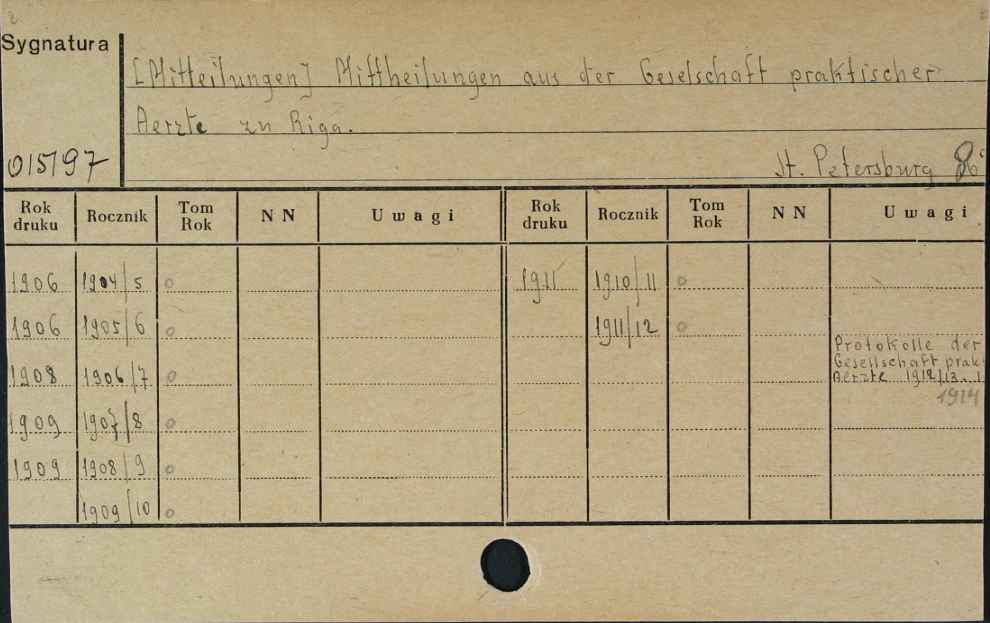 Sygnatura
[Mitteilungen] Mittheilungen aus der Geselschaft praktischer
Aerzte zu Riga.
015197
St. Petersburg 8°
Rok druku Rocznik Tom Rok N N Uwagi Rok druku Rocznik Tom Rok N N Uwagi
1906 1904/5 o 1911 1910/11 o
1906 1905/6 o 1911/12 o
Protokolle der
Gesellschaft prak
1908 1906/7 o Aerzte 1912/13.
1914
1909 1907/8 o
1909 1908/9 o
1909/10 o